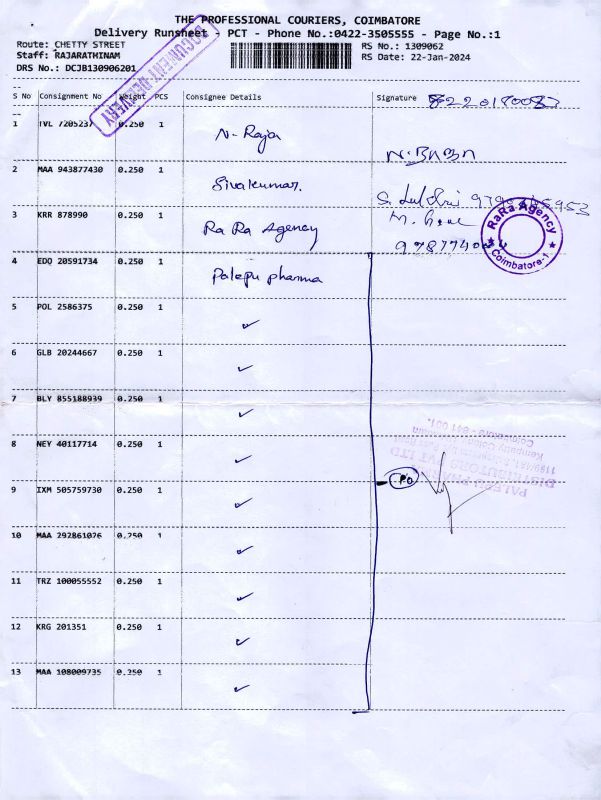 THE PROFESSIONAL COURIERS, COIMBATORE
Delivery Runsheet - PCT - Phone No.:0422-3505555 - Page No.:1
Route: CHETTY STREET
Staff: RAJARATHINAM
DRS No.: DCJB130906201
RS No.: 1309062
RS Date: 22-Jan-2024
DOCUMENT DELIVERY
S No Consignment No Weight PCS Consignee Details Signature
1 TVL 7205237 0.250 1 N. Raja
N. BABA
2 MAA 943877430 0.250 1 Sivakumar.
3 KRR 878990 0.250 1 Ra Ra Agency
RaRa Agency
Coimbatore-1
4 EDQ 20591734 0.250 1 Palepu pharma
5 POL 2586375 0.250 1 ✓
6 GLB 20244667 0.250 1 ✓
7 BLY 855188939 0.250 1 ✓
8 NEY 40117714 0.250 1 ✓
PALEPU PHARMA
DISTRIBUTORS PVT LTD
Coimbatore - 641 001.
9 IXM 505759730 0.250 1 ✓
10 MAA 292861076 0.250 1 ✓
11 TRZ 100055552 0.250 1 ✓
12 KRG 201351 0.250 1 ✓
13 MAA 108009735 0.250 1 ✓